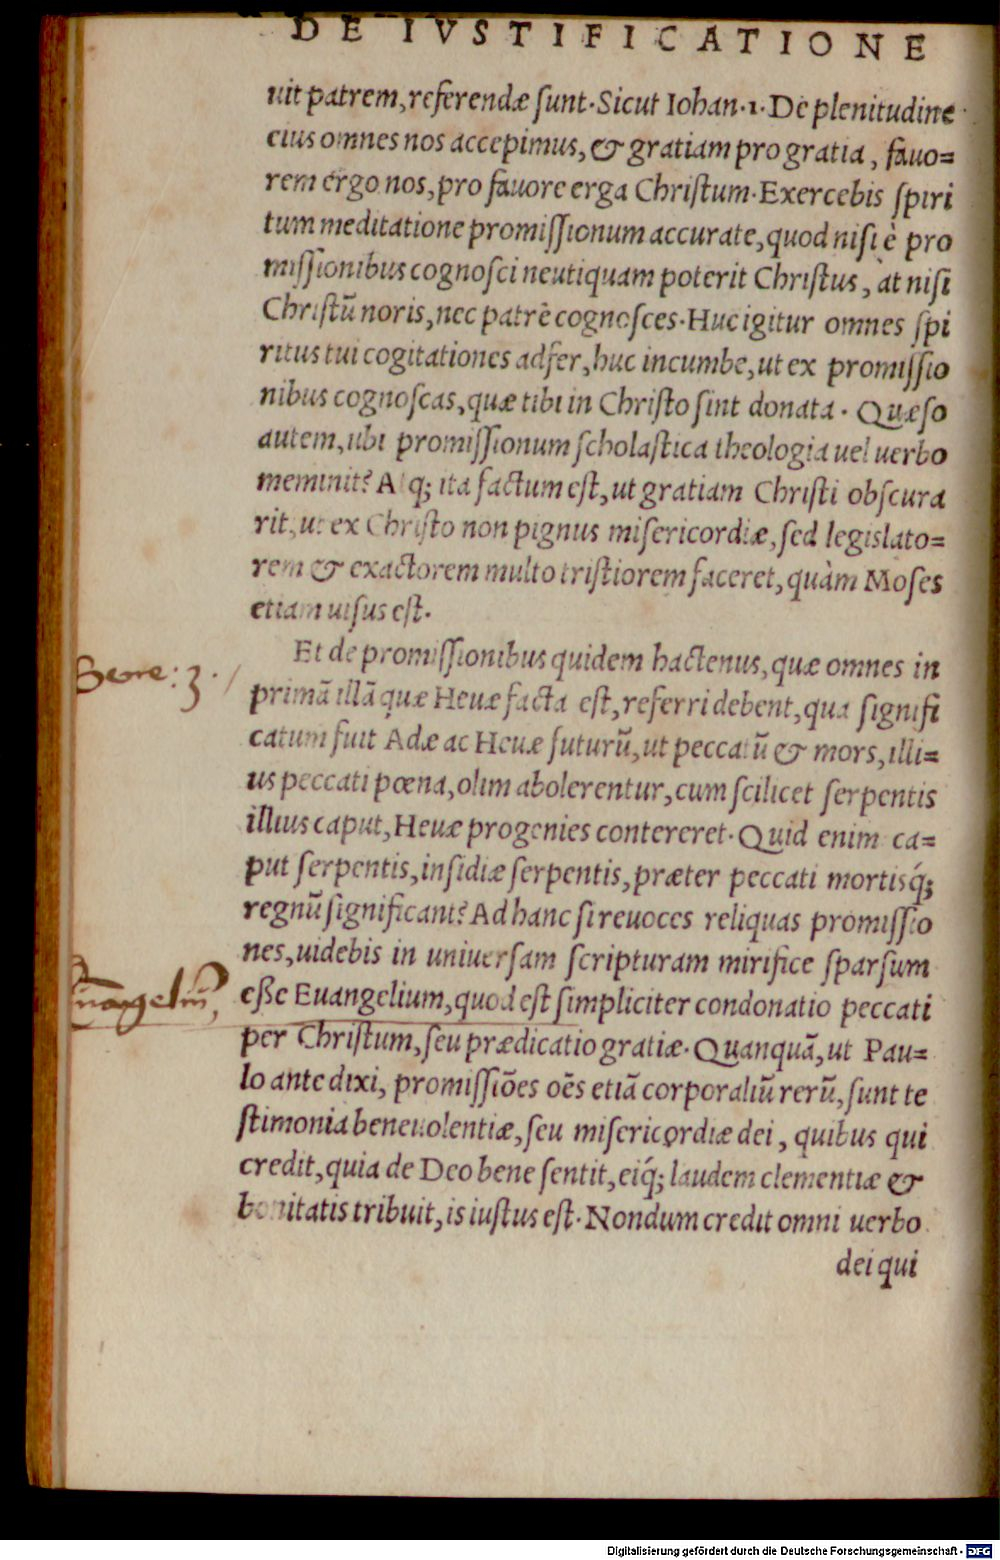 DE IVSTIFICATIONE
uit patrem, referendæ ſunt. Sicut Iohan. 1. De plenitudine
eius omnes nos accepimus, & gratiam pro gratia, fauo=
rem ergo nos, pro fauore erga Chriſtum. Exercebis ſpiri
tum meditatione promiſſionum accurate, quod niſi è pro
miſſionibus cognoſci neutiquam poterit Chriſtus, àt niſi
Chriſtũ noris, nec patrẽ cognoſces. Huc igitur omnes ſpi
ritus tui cogitationes adfer, huc incumbe, ut ex promiſſio
nibus cognoſcas, quæ tibi in Chriſto ſint donata. Quæſo
autem, ubi promiſſionum ſcholaſtica theologia uel uerbo
meminit? Atq; ita factum eſt, ut gratiam Chriſti obſcura
rit, ut ex Chriſto non pignus miſericordiæ, ſed legislato=
rem & exactorem multo triſtiorem faceret, quàm Moſes
etiam uiſus eſt.
Et de promiſſionibus quidem hactenus, quæ omnes in
Gene: 3.
primã illã quæ Heuæ facta eſt, referri debent, qua ſignifi
catum fuit Adæ ac Heuæ futurũ, ut peccatũ & mors, illi=
us peccati pœna, olim abolerentur, cum ſcilicet ſerpentis
illius caput, Heuæ progenies contereret. Quid enim ca=
put ſerpentis, inſidiæ ſerpentis, præter peccati mortisq́;
regnũ ſignificant? Ad hanc ſi reuoces reliquas promiſſio
nes, uidebis in uniuerſam ſcripturam mirifice ſparſum
eſße Euangelium, quod eſt ſimpliciter condonatio peccati
per Chriſtum, ſeu prædicatio gratiæ. Quanquã, ut Pau=
lo ante dixi, promiſſiões oẽs etiã corporaliũ rerũ, ſunt te
ſtimonia beneuolentiæ, ſeu miſericordiæ dei, quibus qui
credit, quia de Deo bene ſentit, eiq́; laudem clementiæ &
bonitatis tribuit, is iuſtus eſt. Nondum credit omni uerbo
dei qui
Digitalisierung gefördert durch die Deutsche Forschungsgemeinschaft - DFG